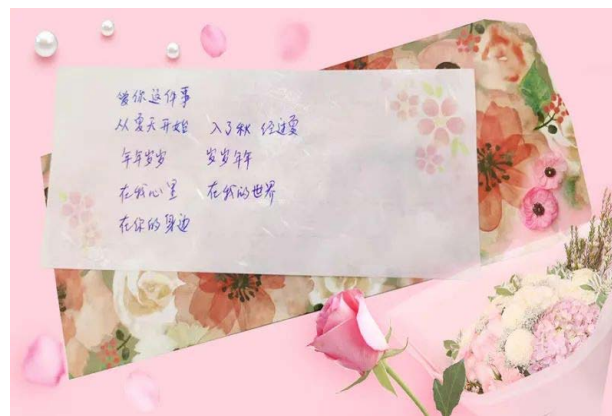 爱你这件事
从夏天开始 入了秋 经过
年年岁岁 岁岁年年
在我心里 在我的世界
在你的身边